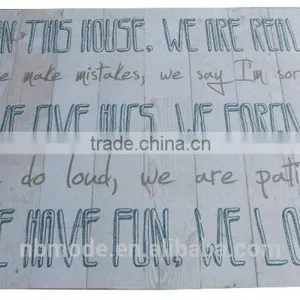 IN THIS HOUSE, WE ARE REAL
we make mistakes, we say I'm sor
WE GIVE HUGS, WE FORGIV
TradeKey.com
do loud, we are pati
WE HAVE FUN, WE LO